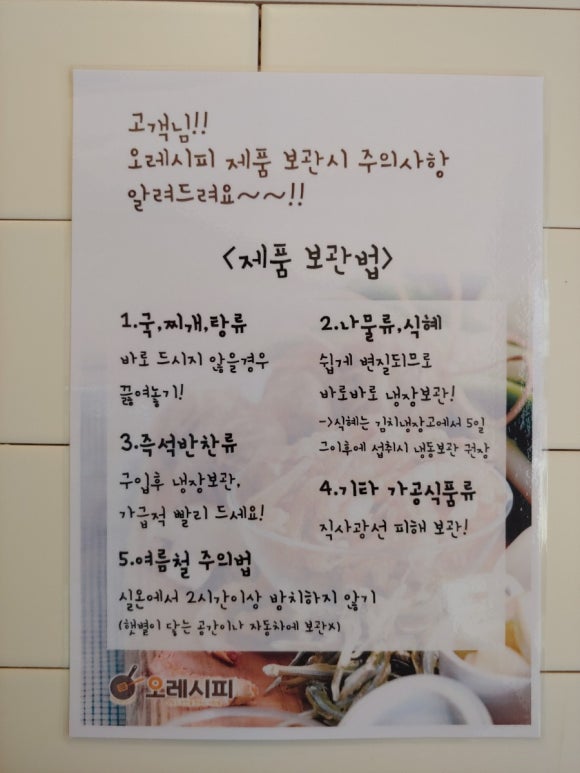 고객님!!
오레시피 제품 보관시 주의사항
알려드려요~~!!
<제품 보관법>
1.국,찌개,탕류
바로 드시지 않을경우
끓여놓기!
2.나물류,식혜
쉽게 변질되므로
바로바로 냉장보관!
->식혜는 김치냉장고에서 5일
그이후에 섭취시 냉동보관 권장
3.즉석반찬류
구입후 냉장보관,
가급적 빨리 드세요!
4.기타 가공식품류
직사광선 피해 보관!
5.여름철 주의법
실온에서 2시간이상 방치하지 않기
(햇볕이 닿는 공간이나 자동차에 보관x)
오레시피